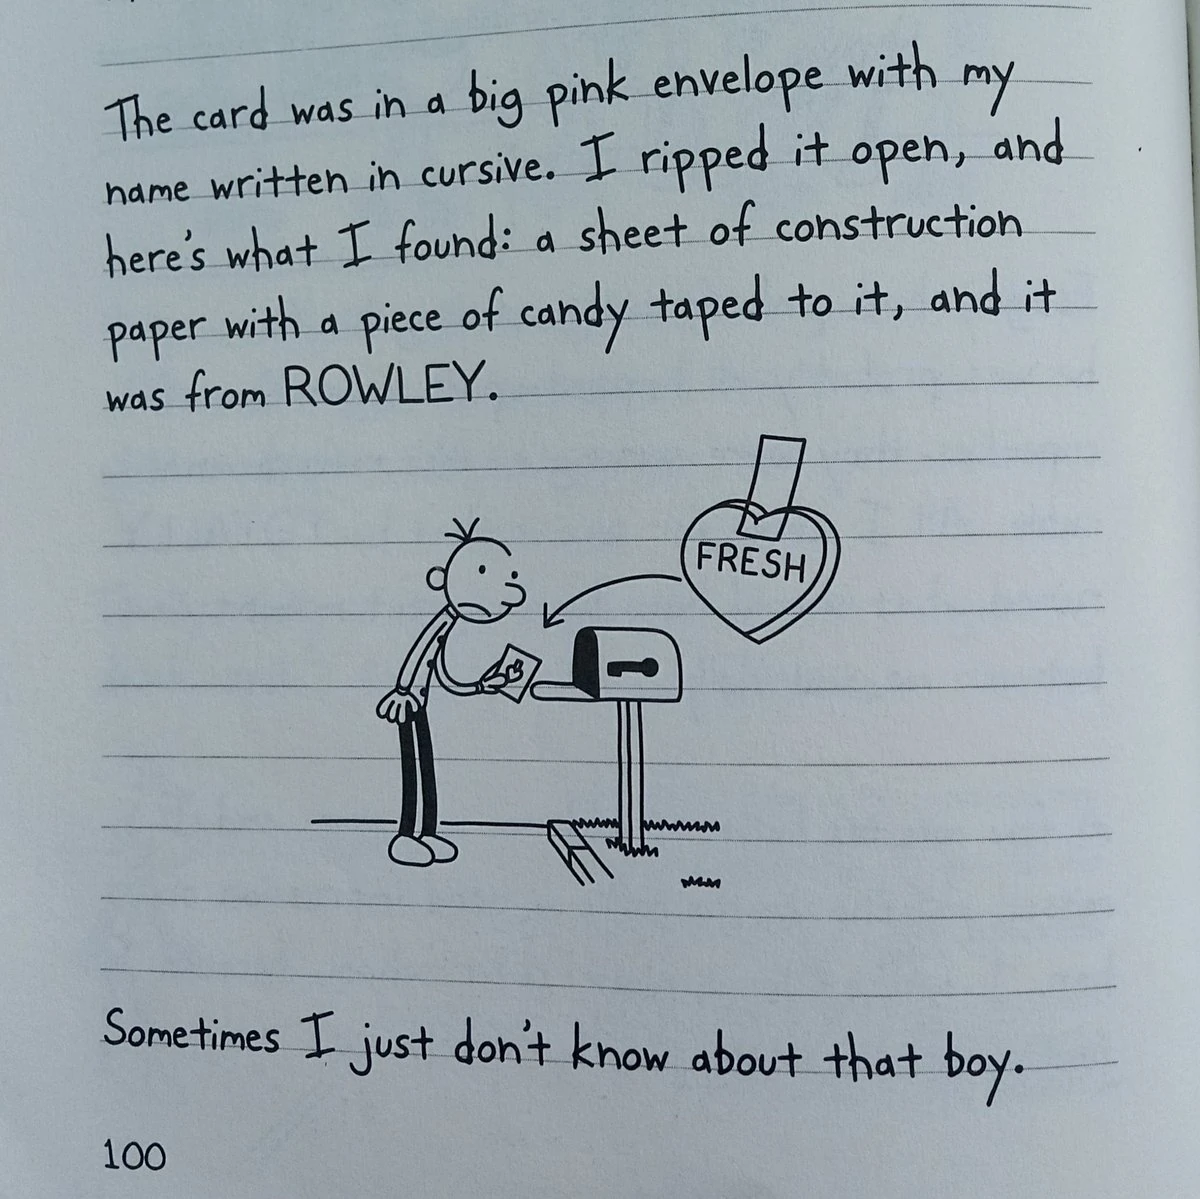 The card was in a big pink envelope with my
name written in cursive. I ripped it open, and
here's what I found: a sheet of construction
paper with a piece of candy taped to it, and it
was from ROWLEY.
FRESH
Sometimes I just don't know about that boy.
100